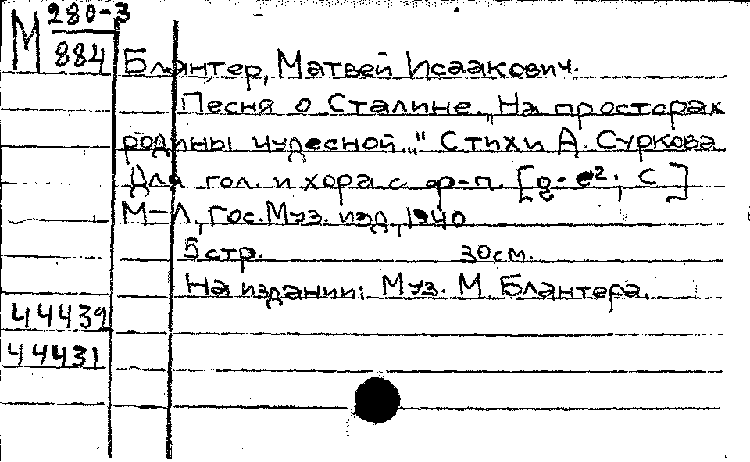 М 280-3
884
Блянтер, Матвей Исаакович.
Песня о Сталине. „На просторах
родины чудесной..." Стихи А. Суркова
Для гол. и хора с ф-п. [g-e²; C]
М-Л, Гос. Муз. изд., 1940
5 стр. 30 см.
На издании: Муз. М. Блантера.
44439
44431